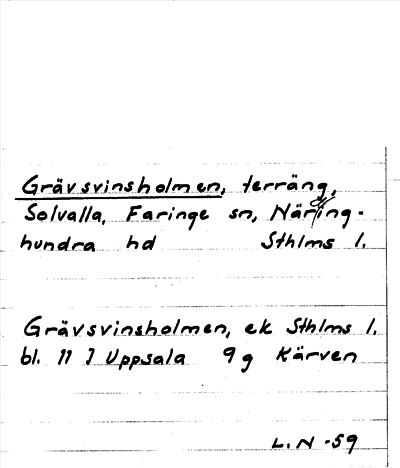 Grävsvinsholmen, terräng,
Solvalla, Faringe sn, Närding-
hundra hd Sthlms l.
Grävsvinsholmen, ek Sthlms l.
bl. 11 I Uppsala 9g Kärven
L.N -59